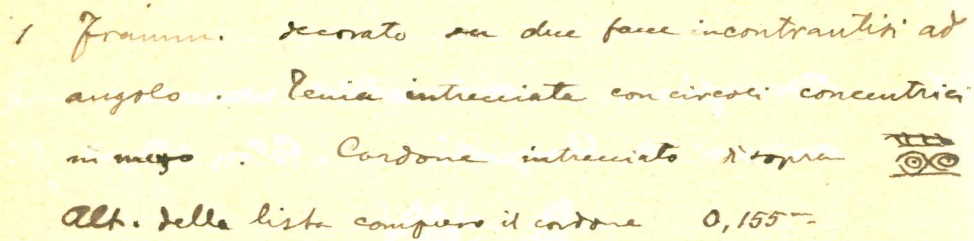 1 Framm. decorato su due facce incontrantisi ad
angolo. Tenia intrecciata con circoli concentrici
in mezzo. Cordone intrecciato di sopra
Alt. della lista compreso il cordone 0,155 m